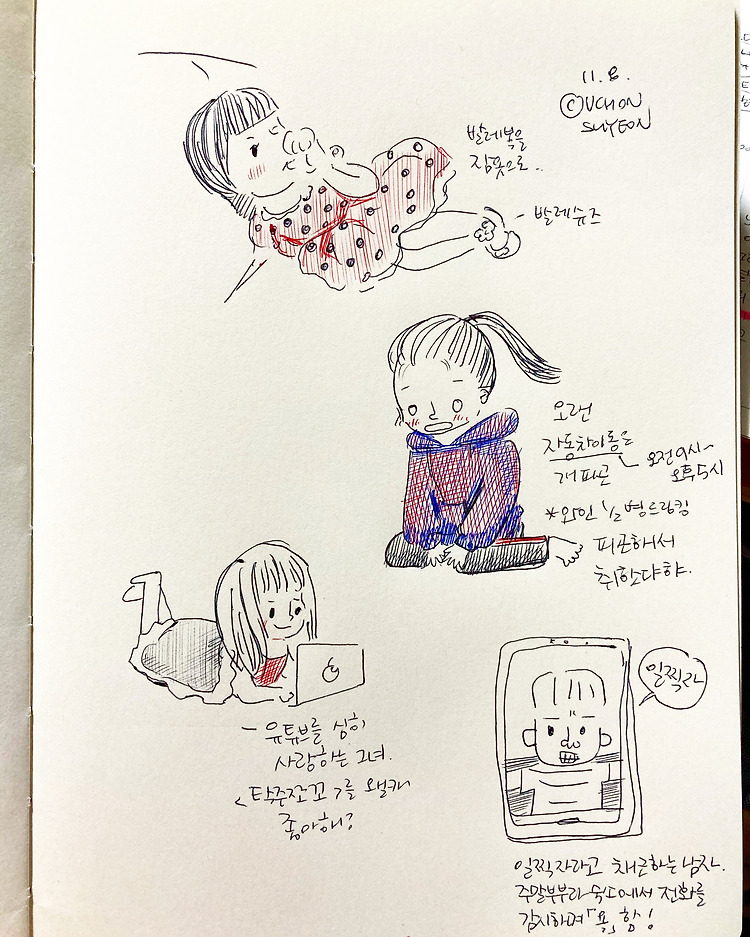 11. 8.
ⒸUCHON
SUYEON
발레복을
잠옷으로..
- 발레슈즈
오랜
자동차이동은
개피곤
오전9시~
오후5시
*와인 ½병드링킹
피곤해서
취한다햐.
- 유튜브를 심히
사랑하는 그녀.
좋아해?
일찍자
일찍자라고 채근하는 남자.
주말부부라 숙소에서 전화를
감시하며